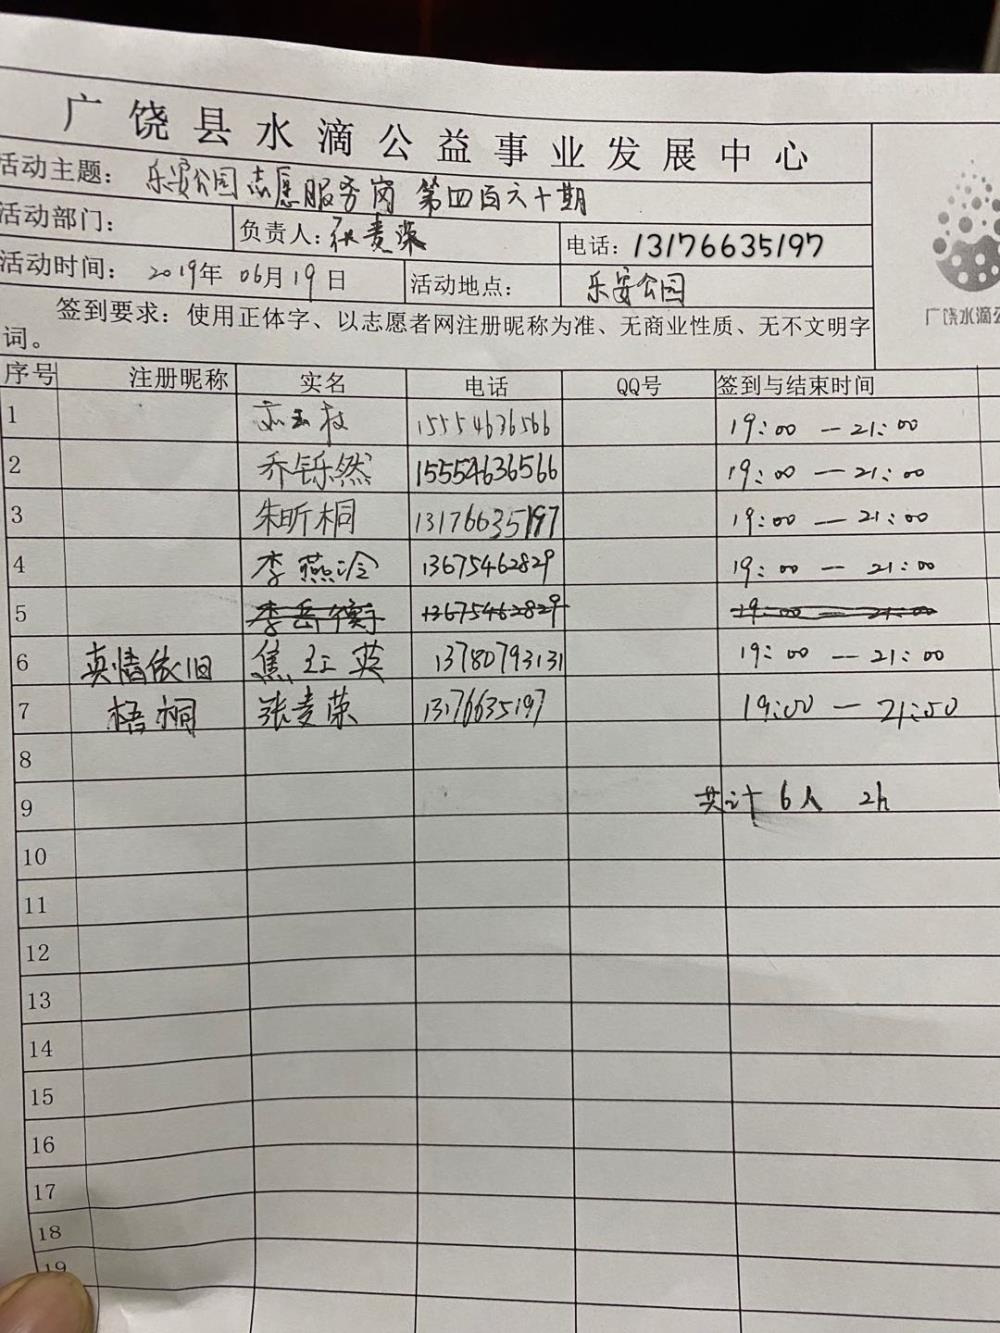 广饶县水滴公益事业发展中心
活动主题: 乐安公园志愿服务岗 第四百六十期
活动部门: 负责人: 张麦荣 电话: 13176635197
活动时间: 2019年 06月19日 活动地点: 乐安公园
签到要求: 使用正体字、以志愿者网注册昵称为准、无商业性质、无不文明字
词。
广饶水滴公
序号 注册昵称 实名 电话 QQ号 签到与结束时间
1 15554636566 19:00 — 21:00
2 乔铄然 15554636566 19:00 — 21:00
3 朱昕桐 13176635197 19:00 — 21:00
4 李燕泠 13675462829 19:00 — 21:00
5 李岳衡 13675462829 19:00 — 21:00
6 真情依旧 焦红英 13780793131 19:00 — 21:00
7 梧桐 张麦荣 13176635197 19:00 — 21:00
8
9 共计 6人 2h
10
11
12
13
14
15
16
17
18
19